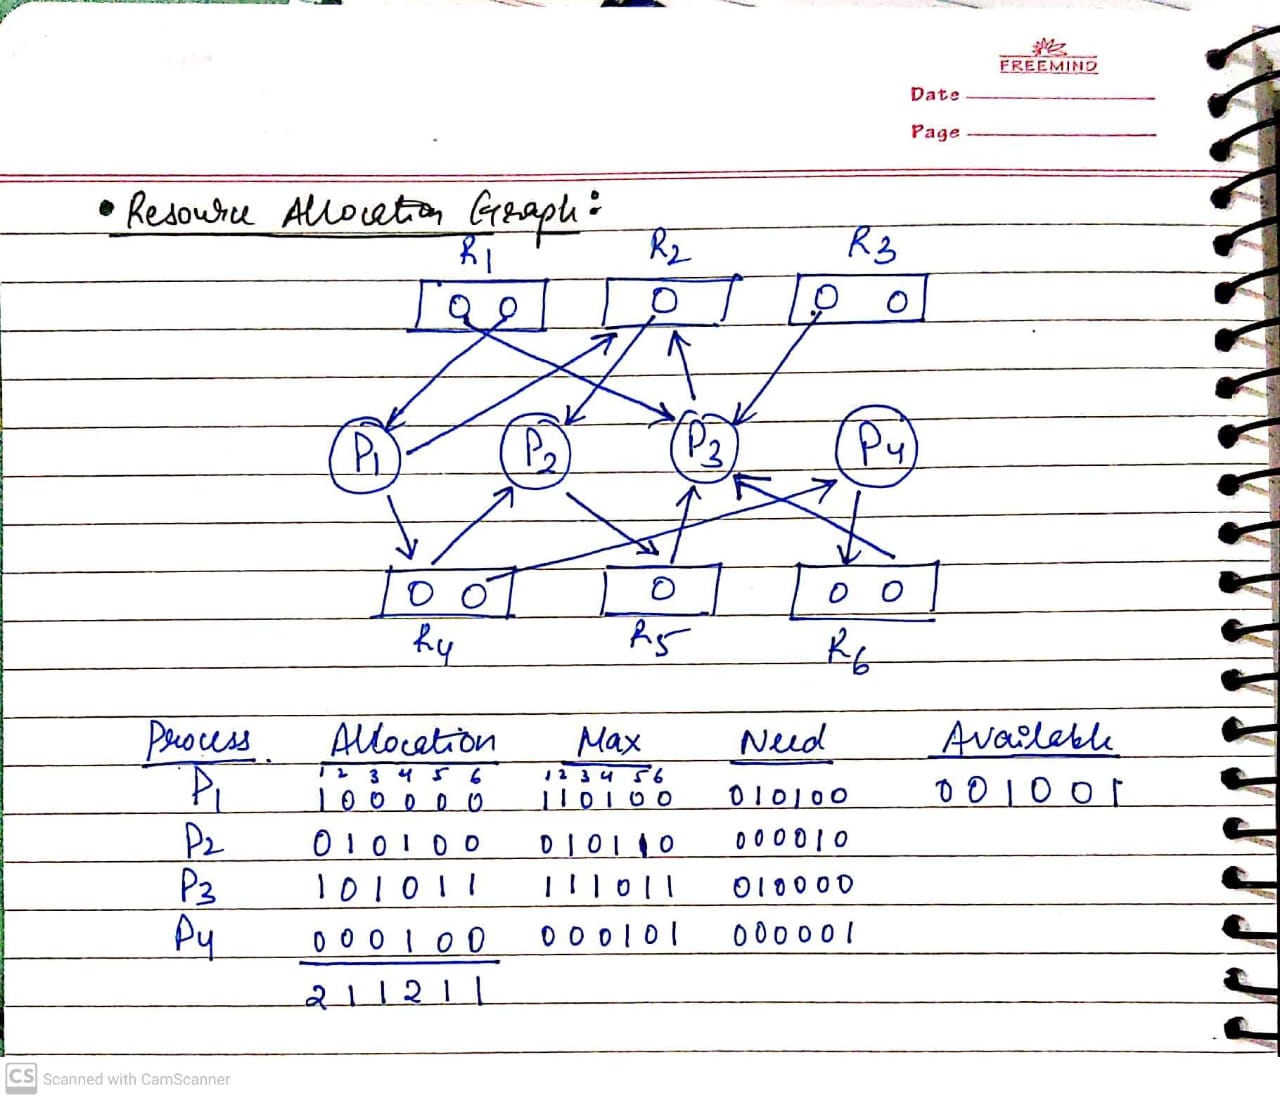 FREEMIND
Date
Page
• Resource Allocation Graph:
R1 R2 R3
P1 P2 P3 P4
R4 R5 R6
Process Allocation Max Need Available
1 2 3 4 5 6 1 2 3 4 5 6
P1 1 0 0 0 0 0 1 1 0 1 0 0 0 1 0 1 0 0 0 0 1 0 0 1
P2 0 1 0 1 0 0 0 1 0 1 1 0 0 0 0 0 1 0
P3 1 0 1 0 1 1 1 1 1 0 1 1 0 1 0 0 0 0
P4 0 0 0 1 0 0 0 0 0 1 0 1 0 0 0 0 0 1
2 1 1 2 1 1
CS Scanned with CamScanner